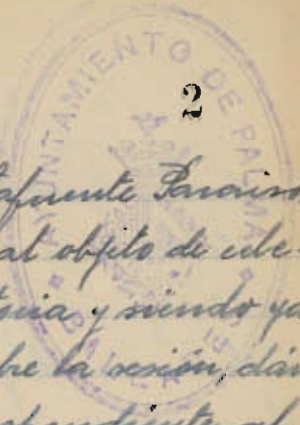 AYUNTAMIENTO DE PALMA
2
Lafuente Paraiso,
al objeto de cele-
toria y siendo ya
bre la sesión, dán